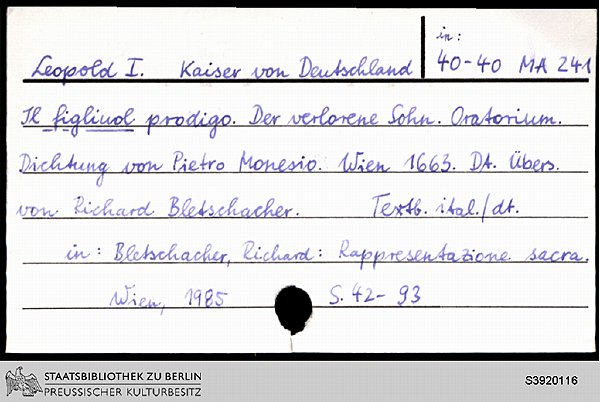 in:
Leopold I. Kaiser von Deutschland 40-40 MA 241
Il figliuol prodigo. Der verlorene Sohn. Oratorium.
Dichtung von Pietro Monesio. Wien 1663. Dt. Übers.
von Richard Bletschacher. Textb. ital./dt.
in: Bletschacher, Richard: Rappresentazione sacra.
Wien, 1985 S. 42-93
STAATSBIBLIOTHEK ZU BERLIN
PREUSSISCHER KULTURBESITZ
S3920116